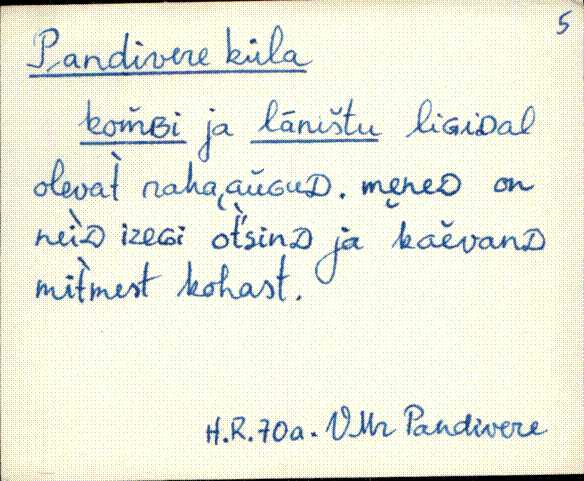 5
Pandivere küla
kom̆ʙi ja lāništu liɢiᴅal
olevat̀ raha‿aŭɢuᴅ. meneᴅ on
neìᴅ izeɢi ot̀'sinᴅ ja kaĕvanᴅ
mit̀mest kohast.
H.R.70a. VMr Pandivere